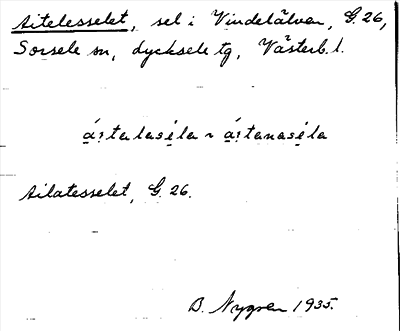 Aitelesselet, sel i Vindelälven, G. 26,
Sorsele sn, Lycksele tg, Västerb. l.
á:talasela ~ á:tanasela
Ailatesselet, G. 26.
B. Nygren 1935.